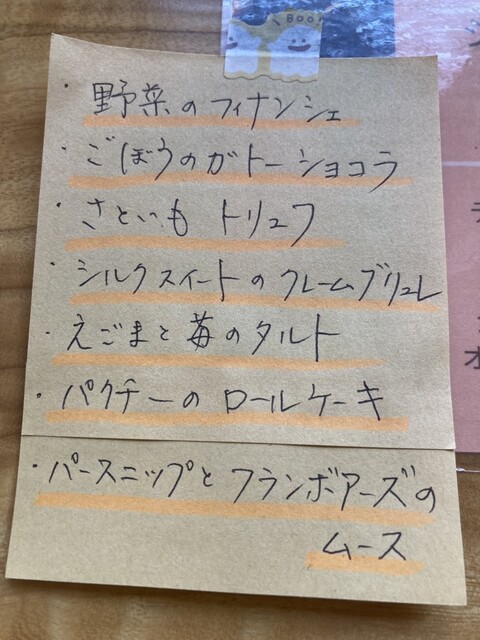 BOO!
・野菜のフィナンシェ
・ごぼうのガトーショコラ
・さといもトリュフ
・シルクスイートのクレームブリュレ
・えごまと苺のタルト
・パクチーのロールケーキ
・パースニップとフランボアーズの
ムース